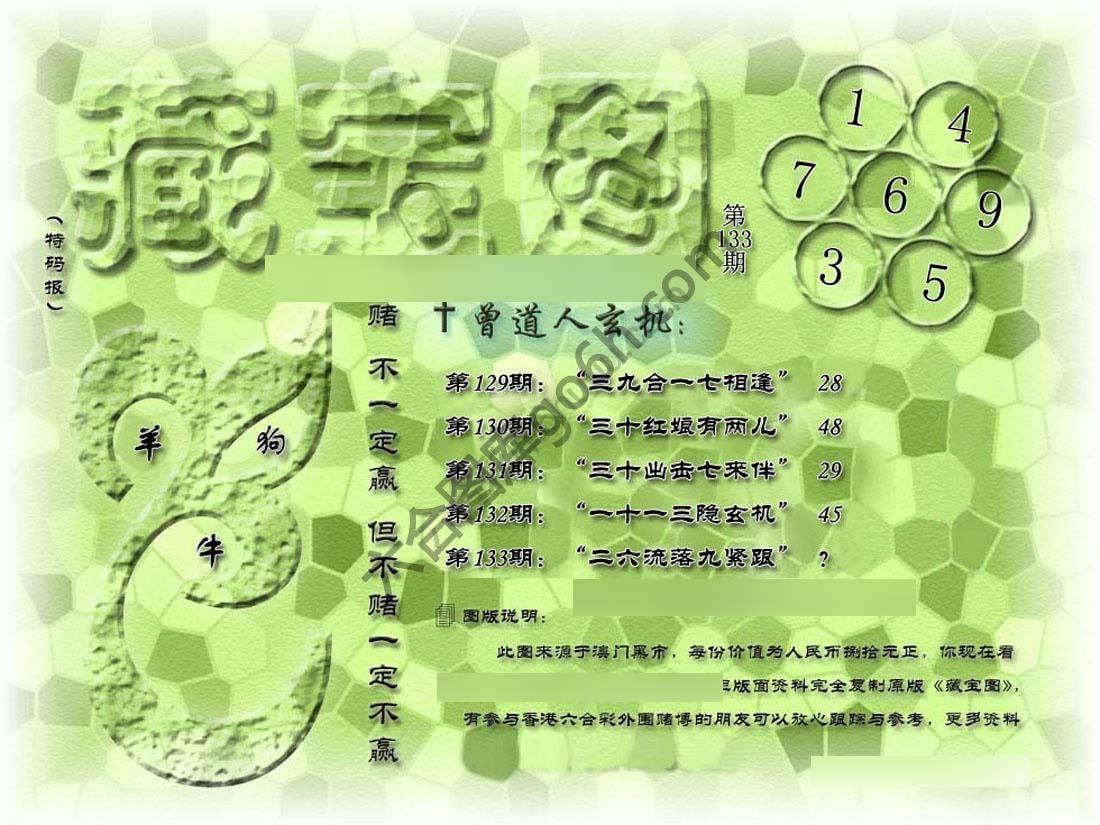 藏宝图
（特码报）
第
133
期
1
4
7
6
9
3
5
羊
狗
牛
赌不一定赢但不赌一定不赢
曾道人玄机：
第129期：“三九合一七相逢” 28
第130期：“三十红娘有两儿” 48
第131期：“三十出击七来伴” 29
第132期：“一十一三隐玄机” 45
第133期：“二六流落九紧跟” ?
图版说明：
此图来源于澳门黑市，每份价值为人民币捌拾元正，你现在看
版面资料完全复制原版《藏宝图》，
有参与香港六合彩外围赌博的朋友可以放心跟踪与参考，更多资料
六合图库go6h.com